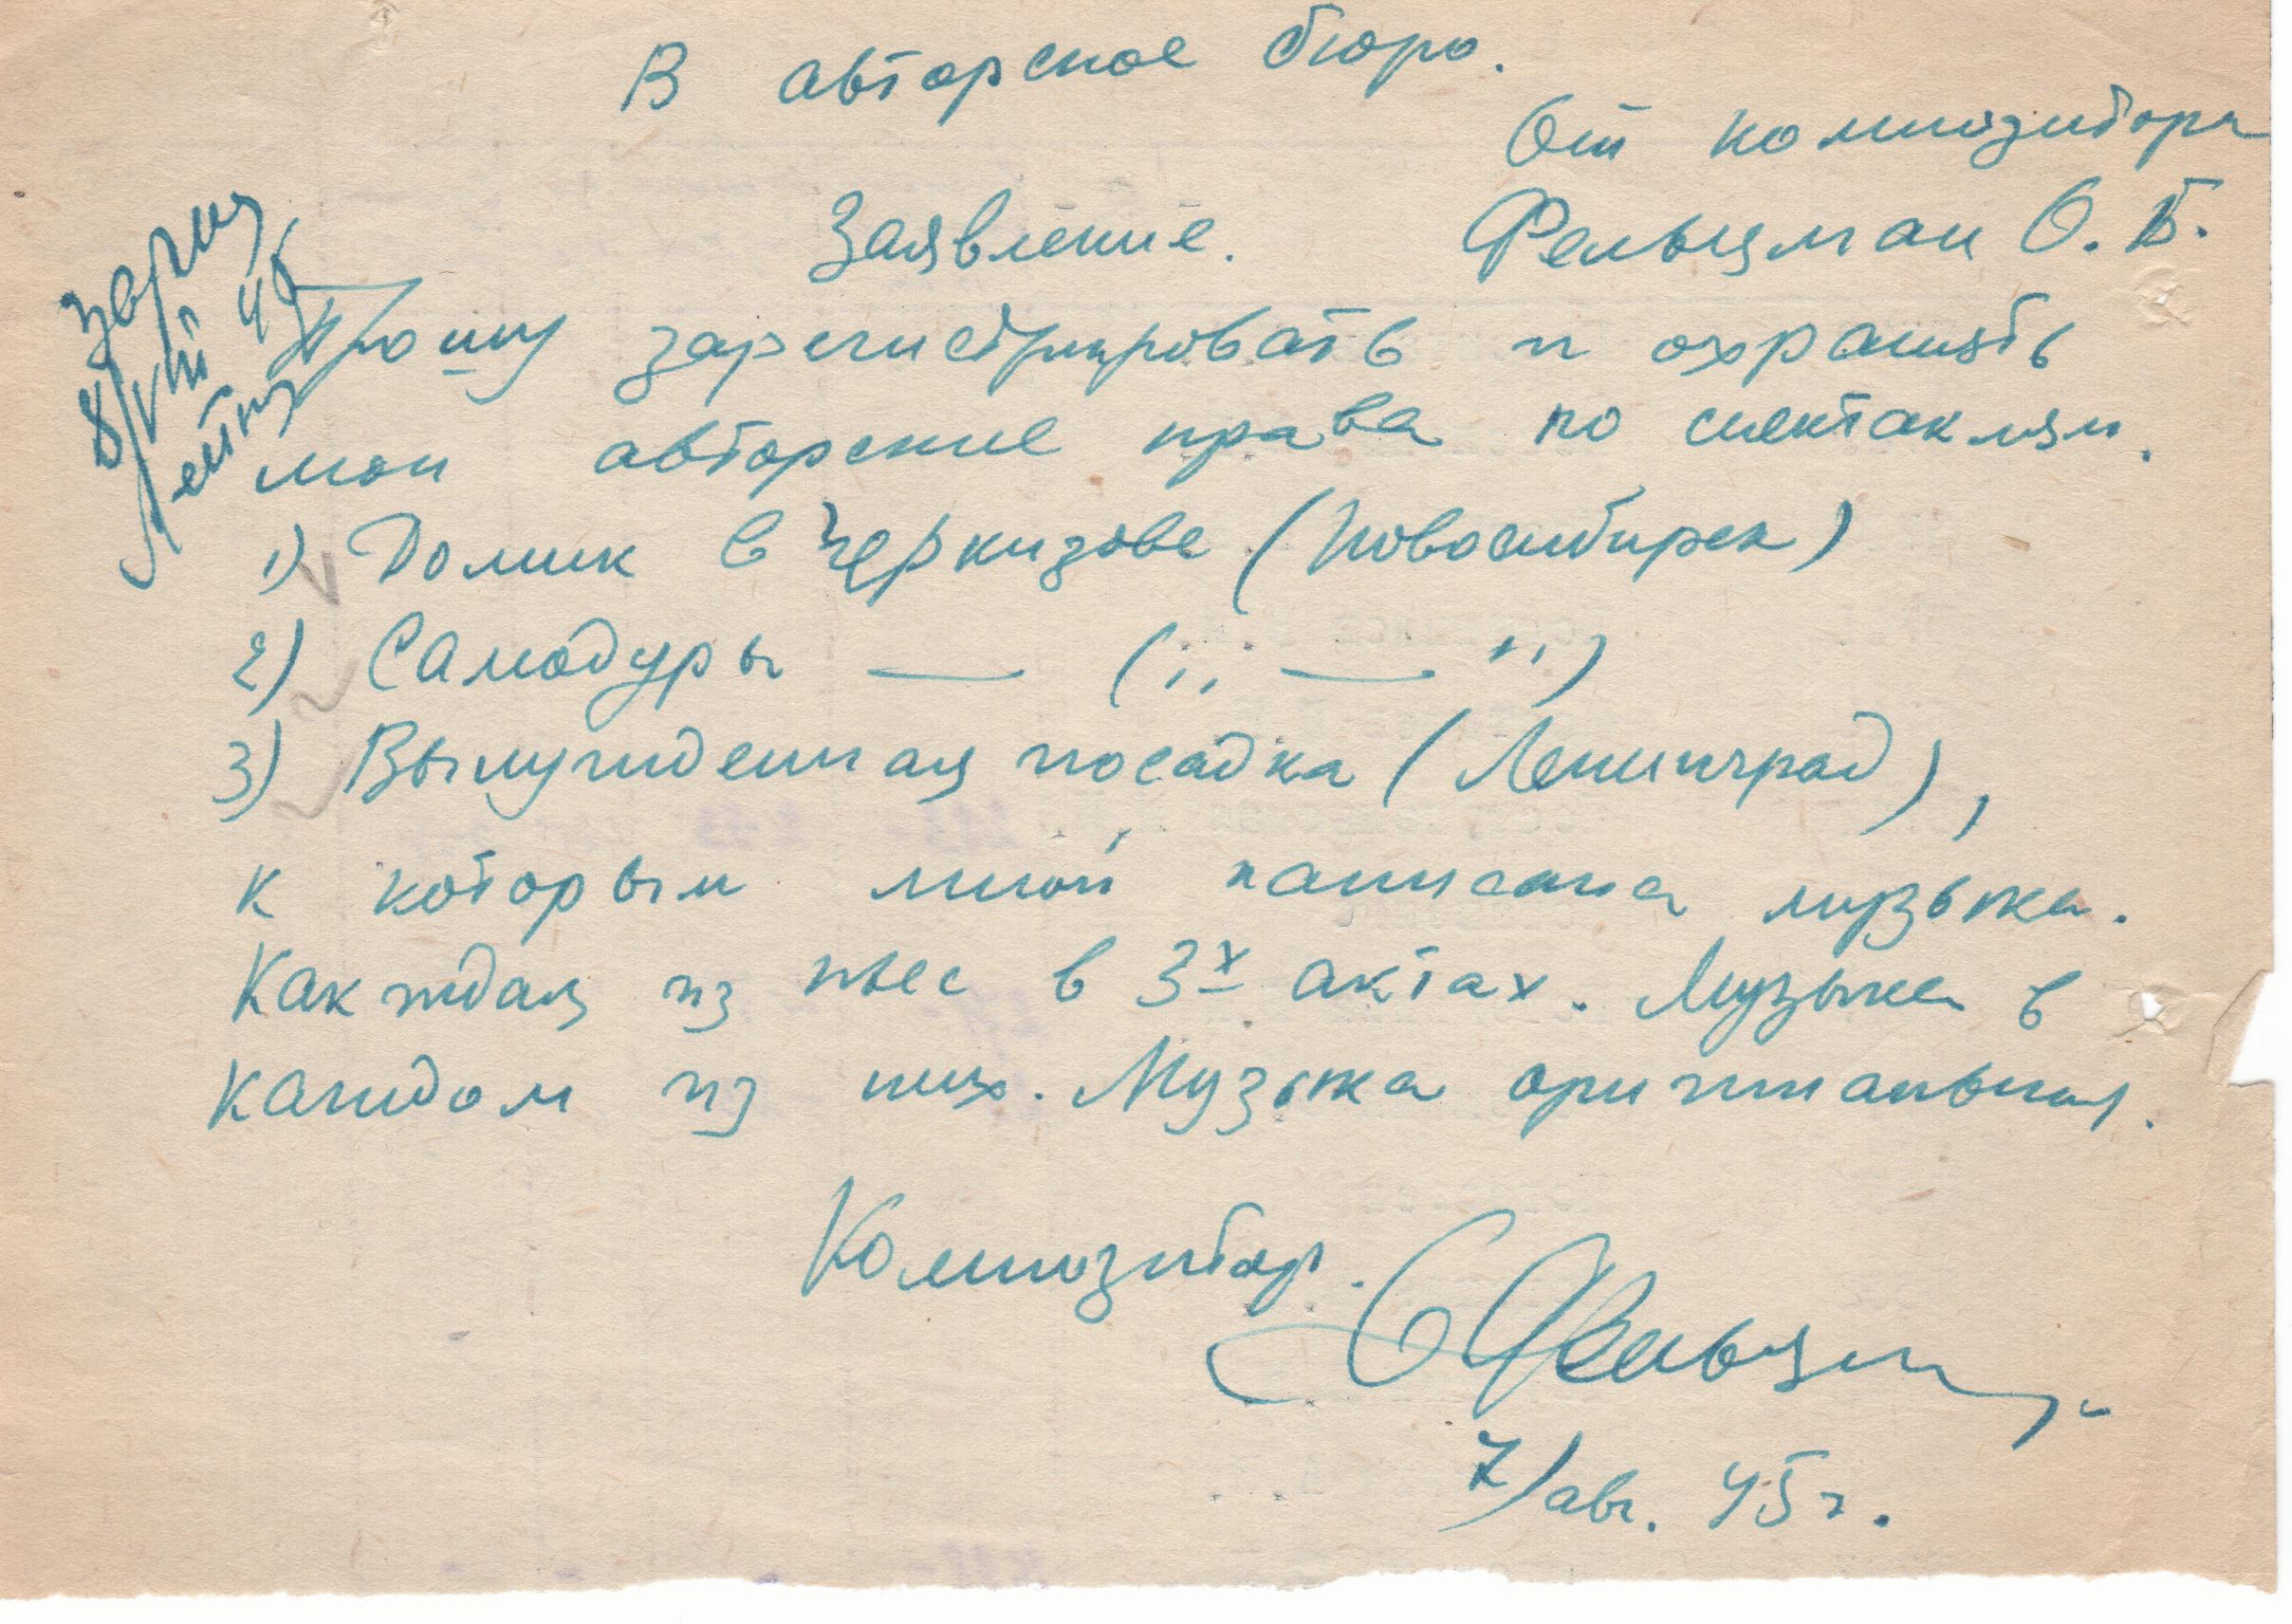 В авторское бюро.
От композитора
Заявление. Фельцман О. Б.
Прошу зарегистрировать и охранять
мои авторские права по спектаклям.
1) Домик в Черкизове (Новосибирск)
2) Самодуры — (,, — ")
3) Вынужденная посадка (Ленинград),
к которым мной написана музыка.
Каждая из пьес в 3х актах. Музыка в
каждом из них. Музыка оригинальная.
Композитор. ОФельцман
7/авг. 45 г.
зарег
8/VIII 45